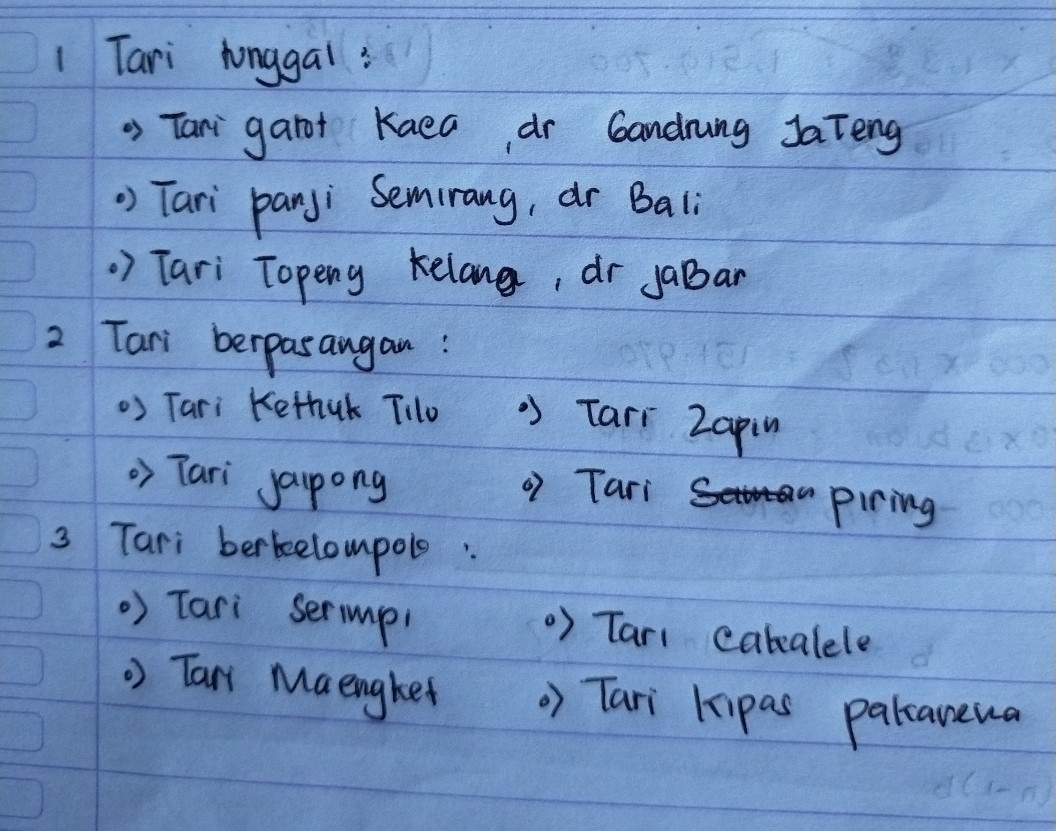 1 Tari tunggal :
Tari gatot Kaca , dr Gandrung JaTeng
Tari panji Semirang, dr Bali
Tari Topeng Kelana , dr JaBar
2 Tari berpasangan :
Tari Kethuk Tilu Tari Zapin
Tari jaipong Tari piring
3 Tari berkelompok :
Tari Serimpi Tari Cakalele
Tari Maengket Tari kipas pakarena